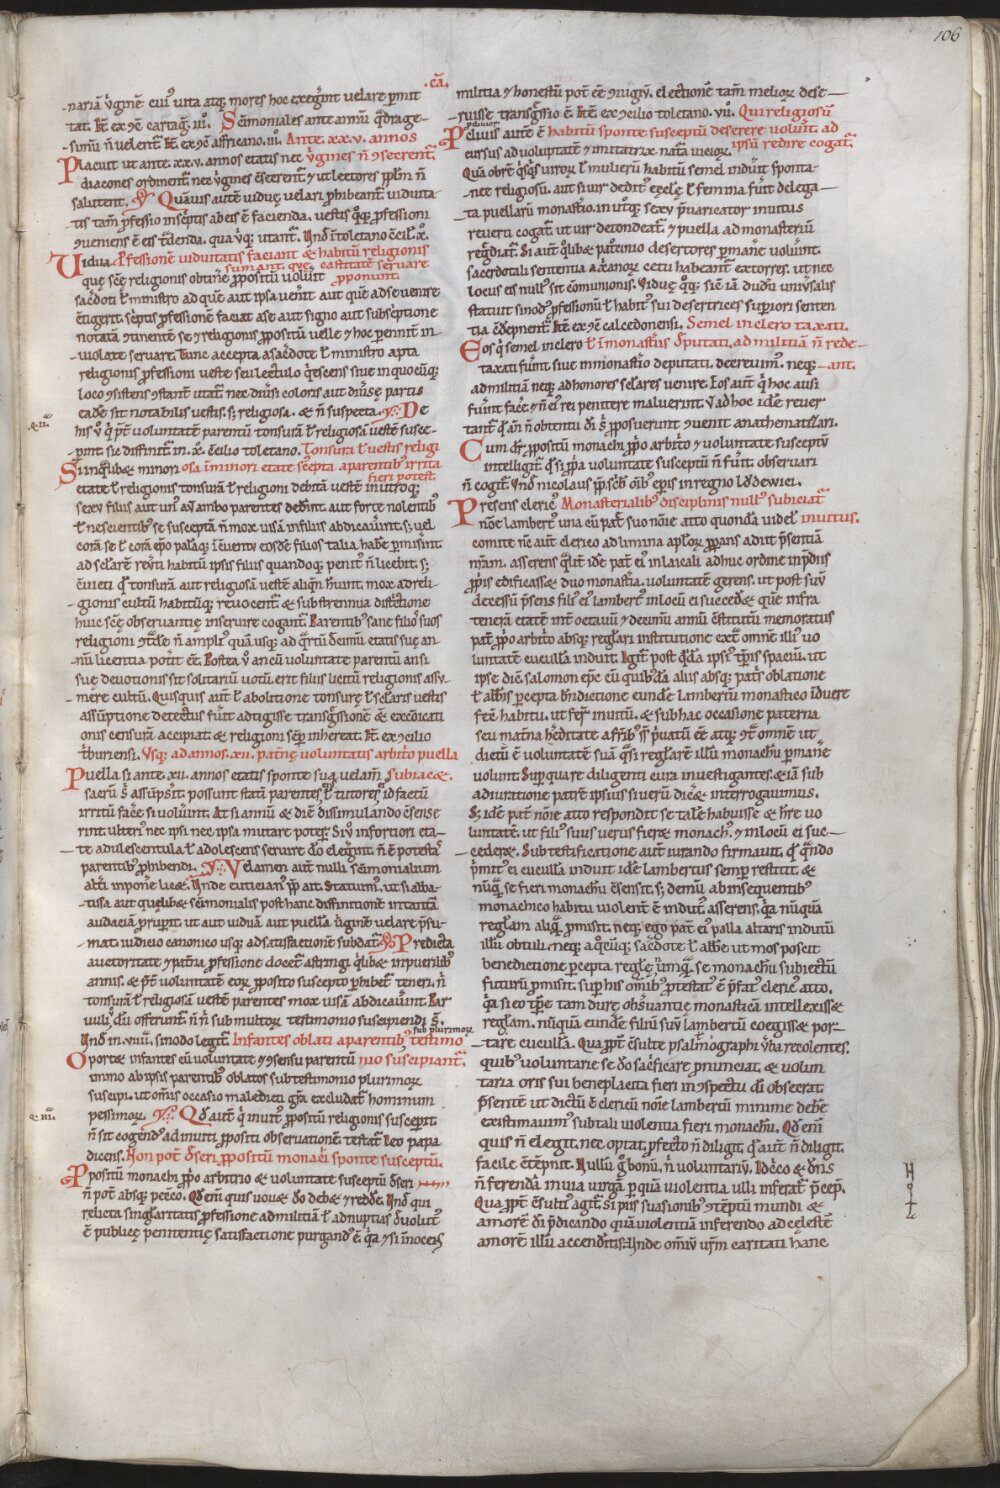 106
.cā.
nariā ỽginē cui᷒ uita atq; mores hoc exegerint uelare p̄mit
tat. Itē ex ɔ̄c cartaḡ. iii. Sc̄imoniales ante annū q̄drage-
simū n̄ uelent᷑. Itē ex ɔ̄c affricano. iii. Ante .xx.v. annos
Placuit ut ante .xx.v. annos etatis nec ỽgines n̄ ɔsecrent᷑.
diacones ordinent᷑. nec ỽgines ɔsecrent᷑. ut lectores pplm̄ n̄
salutent. Quāuis autē uiduę uelari ꝓhibeant᷑. uiduita-
tis tam̄ ꝓfessio inscēptis ab eis ē facienda. uestis q̊q; ꝓfessioni
ɔueniens ē eis tdenda. qua ỽq; utant᷑. Vn̄ in toletano ɔcil̄. x̊.
Vidua. ꝓfessionē uiduitatis faciant & habitū religionis
sumant. quę castitatē seruare
quę scē religionis obtinē ꝓpositū uolūit ꝓponunt.
sacdoti ł ministro ad que aut ipsa uenit aut quē ad se uenire
ɔtigerit. scēptis ꝓfessionē faciat a se aut signo aut subscēptione
notatā ɔtinentē se ⁊ religionis ꝓpositū uelle ⁊ hoc pennit in-
uiolate seruare. Tunc accepta a sacdote ł ministro apta
religionis ꝓfessioni ueste seu lectulo q̄escens siue in quocūq;
loco ɔsistens ɔstant᷑ utat᷑. nec diūsi coloris aut diūsę partis
eadē sit notabilis uestis. s; religiosa. & n̄ suspecta. De
.q̄.ii.
his ỽ q̄ p̄t uoluntatē parentū tonsurā ł religiosā uestē susce-
punt sic diffinit᷑ in .x. ɔcilio toletano. Tonsura ł uestis religi
Si in q̊libet minori osa in minori etate scēpta a parentib᷒ irrita
fieri potest.
etate ł religionis tonsurā ł religioni debitā uestē in utroq;
sexu filiis aut un᷒ aut ambo parentes dedint. aut forte nolentib᷒
ł nescientib᷒ se susceptā n̄ mox uisā in filiis abdicauint. s; uel
corā se ł corā ēpo palāq; ī ɔuentu eosdē filios talia habē p̄misint.
ad sclarē reỽti habitū ipsis filiis quandoq; penit᷒ n̄ licebit. s;
ɔuicti qđ tonsurā aut religiosā uestē aliqn̄ hūint. mox ad reli-
gionis cultū habitūq; reuocent᷑. & sub strennia districtione
huic scē obseruantię inseruire cogant᷑. Parentib᷒ sane filios suos
religioni ɔtdē n̄ ampli᷒ quā usq; ad q̄rtū decimū etatis suę an-
nū licentia potit ēē. Postea ỽ an cū uoluntate parentū an si
suę deuotionis sit solitariū uotū. erit filiis licitū religionis assu-
mere cultū. Quisquis aut᷑ ł abolitione tonsurę ł sclaris uestis
assūptione detectus fūit adtigisse transgressionē & excoīcati
onis censurā accipiat & religioni semp̄ inhereat. Itē ex ɔcilio
triburiensi. Vsq; ad annos .xii. patnę uoluntatis arbitrio puella
Puella si ante .xii. annos etatis sponte sua uelam̄. subiacet.
sacrū s̄ assūpsit. possunt statī parentes ei᷒ ł tutores id factū
irritū facē si uolūint. At si annū & diē dissimulando ɔsense
rint. ulteri᷒ nec ipsi nec ipsa mutare poteūt. Si ỽ in fortiori eta-
te adulescentula ł adolescens seruire do elegint. n̄ ē potestas
parentib᷒ ꝓhibendi. Velamen aut᷑ nulli scīmonialium
altri inponē licet. Vnde euticianus pp̄ ait. Statuim᷒. ut si abba-
tissa aut quelibet sc̄imonialis post hanc diffinitionē in tantā
audaciā prūpit. ut aut uiduā aut puellā ỽginē uelare presu-
mat. iudicio canonico usq; ad satisfactionē subdat᷑. Predicta
auctoritate ⁊ patna ꝓfessione docet᷑ astringi q̊slibet in puerilib᷒
annis. & p̄t uoluntatē eor̄ ꝓposito suscepto ꝓhibet᷑ teneri. n̄
tonsurā ł religiosā uestē parentes mox uisā abdicauint. Par
uuli q̄ do offerunt᷑ n̄ n̄ sub multor̄ testimonio suscipiendi s̄.
Vn̄ in .viiii. sinodo legit᷑. Infantes oblati a parentib᷒ testimo
sub plurimor̄
Oportet infantes cū uoluntate ⁊ ɔsensu parentū nio suscipiant᷑.
immo ab ipsis parentib᷒ oblatos sub testimonio plurimor̄
suscipi. ut om̄is occasio maledicti gr̄a excludat᷑ hominum
.q̄.iii.
pessimor̄. Qđ aut᷑ q̄ inuit᷒ ꝓpositū religionis susceperit
n̄ sit cogend᷒ ad inuiti ꝓpositi obseruationē testat᷑ leo papa
dicens. Non pot᷑ deseri ꝓpositū monachi sponte susceptū.
Propositū monachi ꝓprio arbitrio & uoluntate susceptū deseri
n̄ pot᷑ absq; peccō. Qđ enī quis uouet do debet ⁊ reddē. Vn̄ qui
relicta singlaritatis ꝓfessione ad militiā ł ad nuptias deuolut᷒
ē publicę penitentię satisfactione purgand᷒ ē. q̄a ⁊si innocens
militia ⁊ honestū pot᷑ ēē ɔiugiū. electionē tam̄ meliorē dese-
ruisse transgressio ē. Itē ex ɔcilio toletano .vii. Qui religiosū
Proclius autē ē habitū sponte susceptū deserere uolunt. ad
cursus ad uoluptatē ⁊ imitatrix nata uicior̄. ipsū redire cogat᷑.
Quā obrē q̊sq̄s uiror̄ ł mulierū habitū semel induit sponta-
nee religiosū. aut si uir dedit᷒ ecclę ł femina fuit delega-
ta puellarū monastio. in utq; sexu preuaricator inuitus
reuerti cogat᷑. ut uir detondeat᷑. ⁊ puella ad monasteriū
regrediat᷑. Si aut᷑ q̊libet patrocinio desertores pmanē uolūint.
sacerdotali sententia a xp̄ianor̄ cetu habeant᷑ extorres. ut nec
locus eis null᷒ sit cōmunionis. Viduę q̊q; sic iā dudū uniūsalis
statuit sinod᷒ ꝓfessionū ł habit᷒ sui desertrices superiori senten
tia ɔdepnent᷑. Itē ex ɔ̄c calcedonensi. Semel in clero taxati.
Eos q̄ semel in clero ł ī monastiis deputati. ad militiā n̄ rede-
taxati fūint siue in monastio deputati. decreuim᷒. neq; ant.
ad militiā neq; ad honores sclares uenire. Eos aut᷑ q̄ hoc ausi
fuint facē. ⁊ n̄ ei᷒ rei penitere maluerint. ut ad hoc idē reuer
tant᷑ qđ an̄ n̄ obtentu di s̄ ꝓposuerunt ɔuenit anathematizari.
Cum dr̄. ꝓpositū monachi ꝓprio arbitrio ⁊ uoluntate susceptū
intelligit᷑ qđ si ꝓpria uoluntate susceptū n̄ fuit. obseruari
n̄ cogit᷑. Vn̄ nicolaus pp̄ scb̄ om̄ib᷒ ep̄is in regno lodewici.
Presens cleric᷒ Monasterialib᷒ disciplinis null᷒ subiciat᷑
nōe lambert᷒ una cū pat suo nōie atto quondā uidel. inuitus.
comite nē aut᷑ clerico ad limina apl̄or̄ ꝓperans adiit presentiā
nr̄am. asserens qlit idē pat ei᷒ in laicali adhuc ordine inpediens
ꝓpriis edificasset duo monastia. uoluntatē gerens. ut post suū
decessū presens fili᷒ ei᷒ lambert᷒ in locū ei succedet & quē infra
tenerā etatē inter octauū ⁊ decimū annū ɔstitutū memoratus
pat ꝓprio arbitrio absq; reglari institutione extra omnē illi᷒ uo
luntatē cuculla induit. Igit᷑ post q̄dā ipsi᷒ tēpis spaciū. ut
ipse diē. salomon epc cū quib᷒dā aliis absq; patris oblatione
ł abbis pcepta benedictione eundē lambertū monastico īduere
fec̄ habitu. ut fert᷑ inuitū. & sub hac occasione paterna
seu matna hereditate asserib᷒ s̄ priuatū ēē atq; ɔtra omnē ut
dictū ē uoluntatē suā q̊si reglarē illū monachū pmanē
uolunt. Sup quare diligenti cura inuestigantes. & iā sub
adiuratione patrē ipsius si uerū dicet interrogauimus.
S; idē pat nōie atto respondit se talē habuisse & habere uo
luntatē. ut fili᷒ suus uerus fieret monach᷒. ⁊ in locū ei suc-
cederet. Sub testificatione aut᷑ iurando firmauit. qđ q̄ndo
primit᷒ ei cucullā induit idē lambertus semp̄ restitit. &
nūq̄ se fieri monachū ɔsensit. s; demū ab insequentib᷒
monachico habitu uiolent᷒ ē indut᷒ asserens. q̄a nūquā
reglam aliqđ promisit. neq; ego pat ei᷒ palla altaris indutū
illū obtuli. neq; a q̊cūq; sacdote ł abbe ut mos poscit
benedictione pcepta regulę unq̄ se monachū subiectū
futurū ꝓmisit. sup his omīb᷒ ꝓtestat᷒ ē pref at᷒ cleric᷒ atto.
q̄a si eo tēpe tam durē obseruantię monasticā intellexisset
reglam. nūquā eundē filiū suū lambertū coegisset por-
tare cucullā. Qua ppt ɔsulte psalmographi ỽba recolentes.
quib᷒ uoluntarie se do sacrificare pronunciat. & uolun
taria oris sui beneplacita fieri in ɔspectu dn̄i obsecrat.
Presente ut dictū ē clericū nōie lambertū minime debē
existimauim᷒ sub tali uiolentia fieri monachū. Qđ enī
quis n̄ elegit. nec optat. profecto n̄ diligit. qđ aut᷑ n̄ diligit.
facile ɔtēpnit. Nullū g̊ bonū. n̄ uoluntariū. Idcirco & dn̄s
n̄ ferendā in uia uirgā p quā uiolentia ulli inferat᷑ precep.
Qua ppt ɔsulti᷒ agit᷑. Si piis suasionib᷒ ɔtēptū mundi &
amorē di predicando quā uiolentiā inferendo ad celestē
amorē illū accendatis. Vnde om̄iū ur̄m caritati hanc